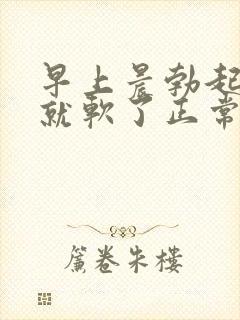 早上晨勃起
就軟了正常
簾卷朱樓